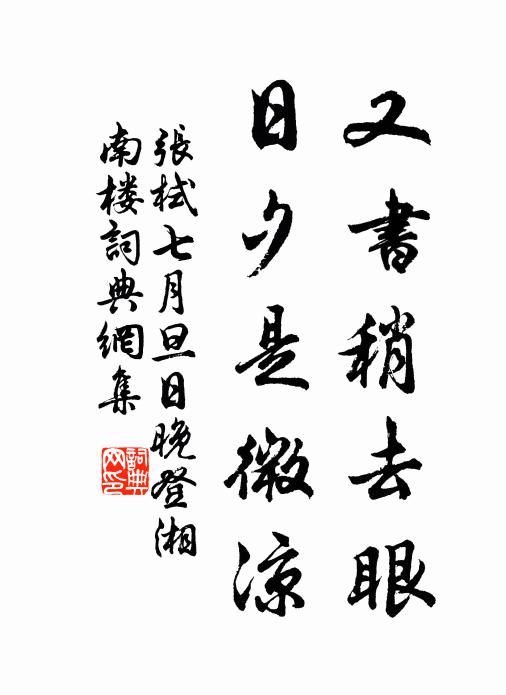 又書稍去眼
日夕是微涼
張栻七月旦日晚登湘
南楼詞典網集
詞典
网印